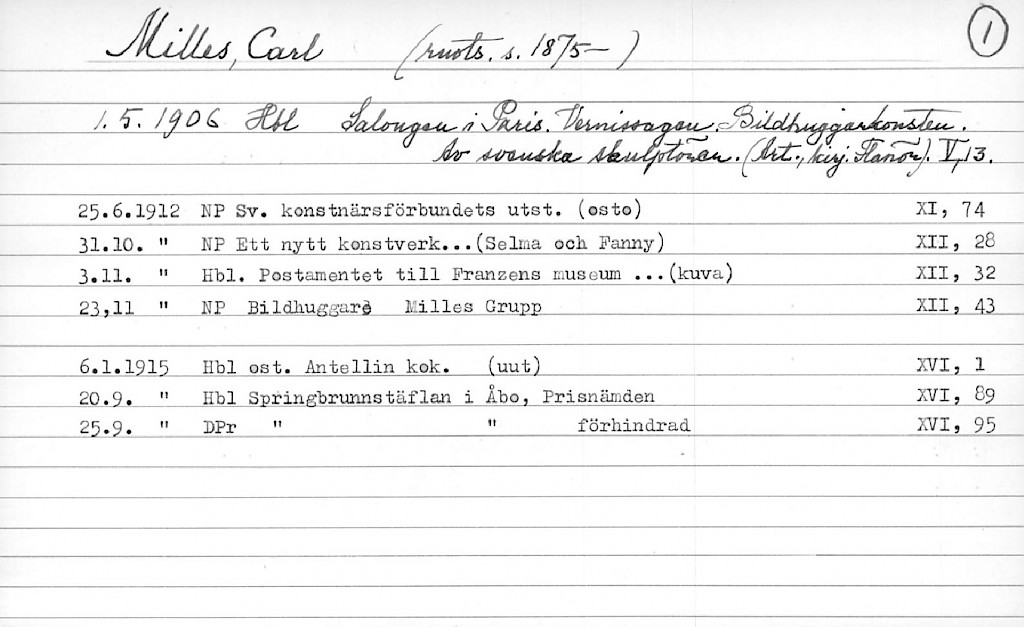 Milles, Carl (ruots. s. 1875— ) 1
1.5.1906 Hbl Salongen i Paris. Vernissagen. Bildhuggarkonsten.
Av svenska skulptörer. (Art., kirj. Flanör). V, 13.
25.6.1912 NP Sv. konstnärsförbundets utst. (osto) XI, 74
31.10. " NP Ett nytt konstverk...(Selma och Fanny) XII, 28
3.11. " Hbl. Postamentet till Franzens museum ...(kuva) XII, 32
23,11 " NP Bildhuggare Milles Grupp XII, 43
6.1.1915 Hbl ost. Antellin kok. (uut) XVI, 1
20.9. " Hbl Springbrunnstäflan i Åbo, Prisnämden XVI, 89
25.9. " DPr " " förhindrad XVI, 95